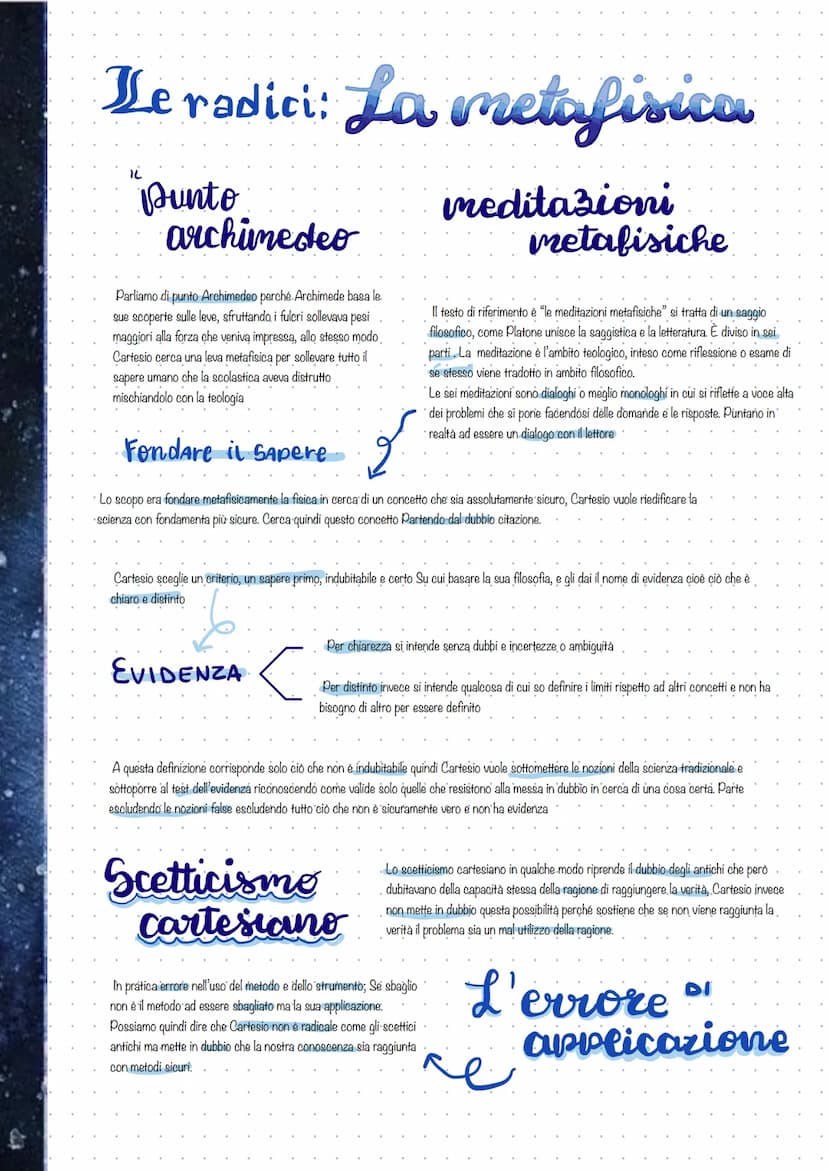 Le radici: La metafisica
IL
punto
archimedeo
Parliamo di punto Archimedeo perché Archimede basa le
sue scoperte sulle leve, sfruttando i fulcri sollevava pesi
maggiori alla forza che veniva impressa, allo stesso modo
Cartesio cerca una leva metafisica per sollevare tutto il
sapere umano che la scolastica aveva distrutto
mischiandolo con la teologia
meditazioni
metafisiche
Il testo di riferimento è "le meditazioni metafisiche" si tratta di un saggio
filosofico, come Platone unisce la saggistica e la letteratura. È diviso in sei
parti . La meditazione è l'ambito teologico, inteso come riflessione o esame di
se stesso viene tradotto in ambito filosofico.
Le sei meditazioni sono dialoghi o meglio monologhi in cui si riflette a voce alta
dei problemi che si pone facendosi delle domande e le risposte. Puntano in
realtà ad essere un dialogo con il lettore
Fondare il sapere
Lo scopo era fondare metafisicamente la fisica in cerca di un concetto che sia assolutamente sicuro, Cartesio vuole riedificare la
scienza con fondamenta più sicure. Cerca quindi questo concetto Partendo dal dubbio citazione.
Cartesio sceglie un criterio, un sapere primo, indubitabile e certo Su cui basare la sua filosofia, e gli dai il nome di evidenza cioè ciò che è
chiaro e distinto
Evidenza
Per chiarezza si intende senza dubbi e incertezze o ambiguità
Per distinto invece si intende qualcosa di cui so definire i limiti rispetto ad altri concetti e non ha
bisogno di altro per essere definito
A questa definizione corrisponde solo ciò che non è indubitabile quindi Cartesio vuole sottomettere le nozioni della scienza tradizionale e
sottoporre al test dell'evidenza riconoscendo come valide solo quelle che resistono alla messa in dubbio in cerca di una cosa certa. Parte
escludendo le nozioni false escludendo tutto ciò che non è sicuramente vero e non ha evidenza
Scetticismo
cartesiano
Lo scetticismo cartesiano in qualche modo riprende il dubbio degli antichi che però
dubitavano della capacità stessa della ragione di raggiungere la verità, Cartesio invece
non mette in dubbio questa possibilità perché sostiene che se non viene raggiunta la
verità il problema sia un mal utilizzo della ragione.
In pratica errore nell'uso del metodo e dello strumento; Se sbaglio
non è il metodo ad essere sbagliato ma la sua applicazione.
Possiamo quindi dire che Cartesio non è radicale come gli scettici
antichi ma mette in dubbio che la nostra conoscenza sia raggiunta
con metodi sicuri.
L'errore DI
applicazione